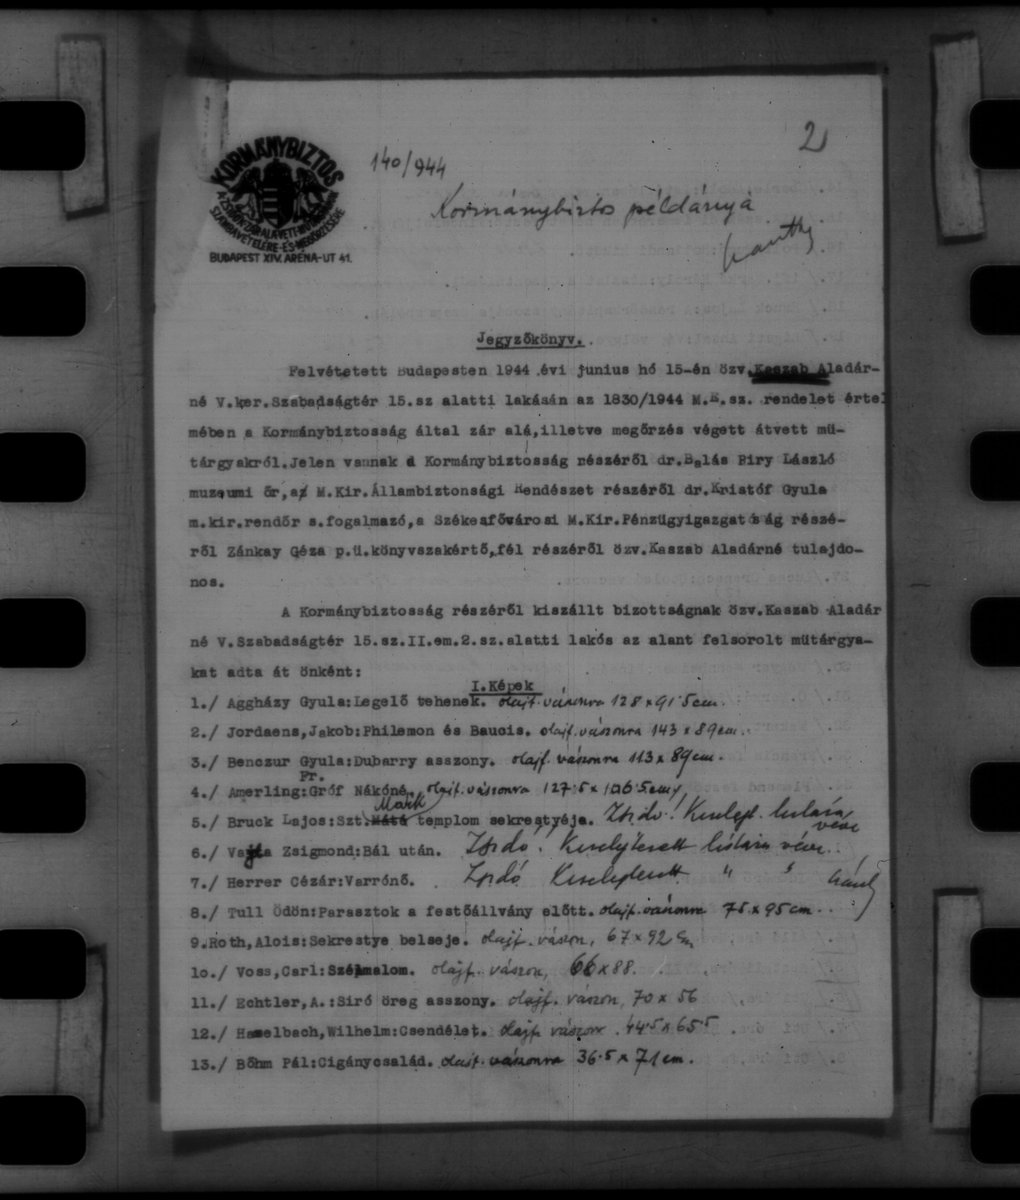 2
KORMÁNYBIZTOS
A ZSIDÓK ZÁR ALÁ VETT MŰTÁRGYAINAK
SZÁMBAVÉTELÉRE-ÉS-MEGŐRZÉSÉRE
BUDAPEST XIV. ARÉNA-UT 41.
140/944
Kormánybiztos példánya
Jegyzőkönyv.
Felvétetett Budapesten 1944 évi junius hó 15-én özv.Kaszab Aladár-
né V.ker.Szabadságtér 15.sz alatti lakásán az 1830/1944 M.E.sz. rendelet értel
mében a Kormánybiztosság által zár alá,illetve megőrzés végett átvett mü-
tárgyakról.Jelen vannak a Kormánybiztosság részéről dr.Balás Piry László
muzeumi őr,az M.Kir.Állambiztonsági Rendészet részéről dr.Kristóf Gyula
m.kir.rendőr s.fogalmazó,a Székesfővárosi M.Kir.Pénzügyigazgatóság részé-
ről Zánkay Géza p.ü.könyvszakértő,fél részéről özv.Kaszab Aladárné tulajdo-
nos.
A Kormánybiztosság részéről kiszállt bizottságnak özv.Kaszab Aladár
né V.Szabadságtér 15.sz.II.em.2.sz.alatti lakós az alant felsorolt mütárgya-
kat adta át önként:
I.Képek
1./ Aggházy Gyula:Legelő tehenek. olajf. vászonra 128 x 91·5 cm.
2./ Jordaens,Jakob:Philemon és Baucis. olajf. vászonra 143 x 89 cm.
3./ Benczur Gyula:Dubarry asszony. olajf. vászonra 113 x 89 cm.
Fr.
4./ Amerling:Gróf Nákóné. olajf. vászonra 127·5 x 106·5 cm
Mark
5./ Bruck Lajos:Szt.Máté templom sekrestyéje. Zsidó! listára
véve
6./ Vajda Zsigmond:Bál után. Zsidó! listára véve.
7./ Herrer Cézár:Varrónő. Zsidó " "
8./ Tull Ödön:Parasztok a festőállvány előtt. olajf. vászonra 75 x 95 cm.
9.Roth,Alois:Sekrestye belseje. olajf. vászon, 67 x 92 cm
10./ Voss,Carl:Szélmalom. olajf. vászon, 66 x 88.
11./ Echtler,A.:Siró öreg asszony. olajf. vászon, 70 x 56
12./ Hamelbach,Wilhelm:Csendélet. olajf. vászon 44·5 x 65·5
13./ Böhm Pál:Cigánycsalád. olajf. vászonra 36·5 x 71 cm.